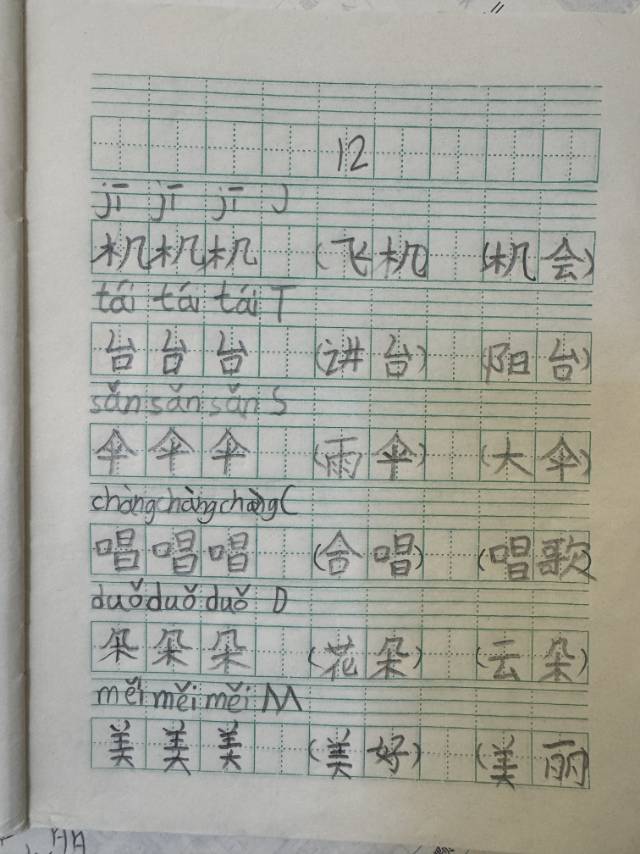 12
jī jī jī J
机机机 (飞机) (机会)
tái tái tái T
台台台 (讲台) (阳台)
sǎn sǎn sǎn S
伞伞伞 (雨伞) (大伞)
chàng chàng chàng C
唱唱唱 (合唱) (唱歌)
duǒ duǒ duǒ D
朵朵朵 (花朵) (云朵)
měi měi měi M
美美美 (美好) (美丽)